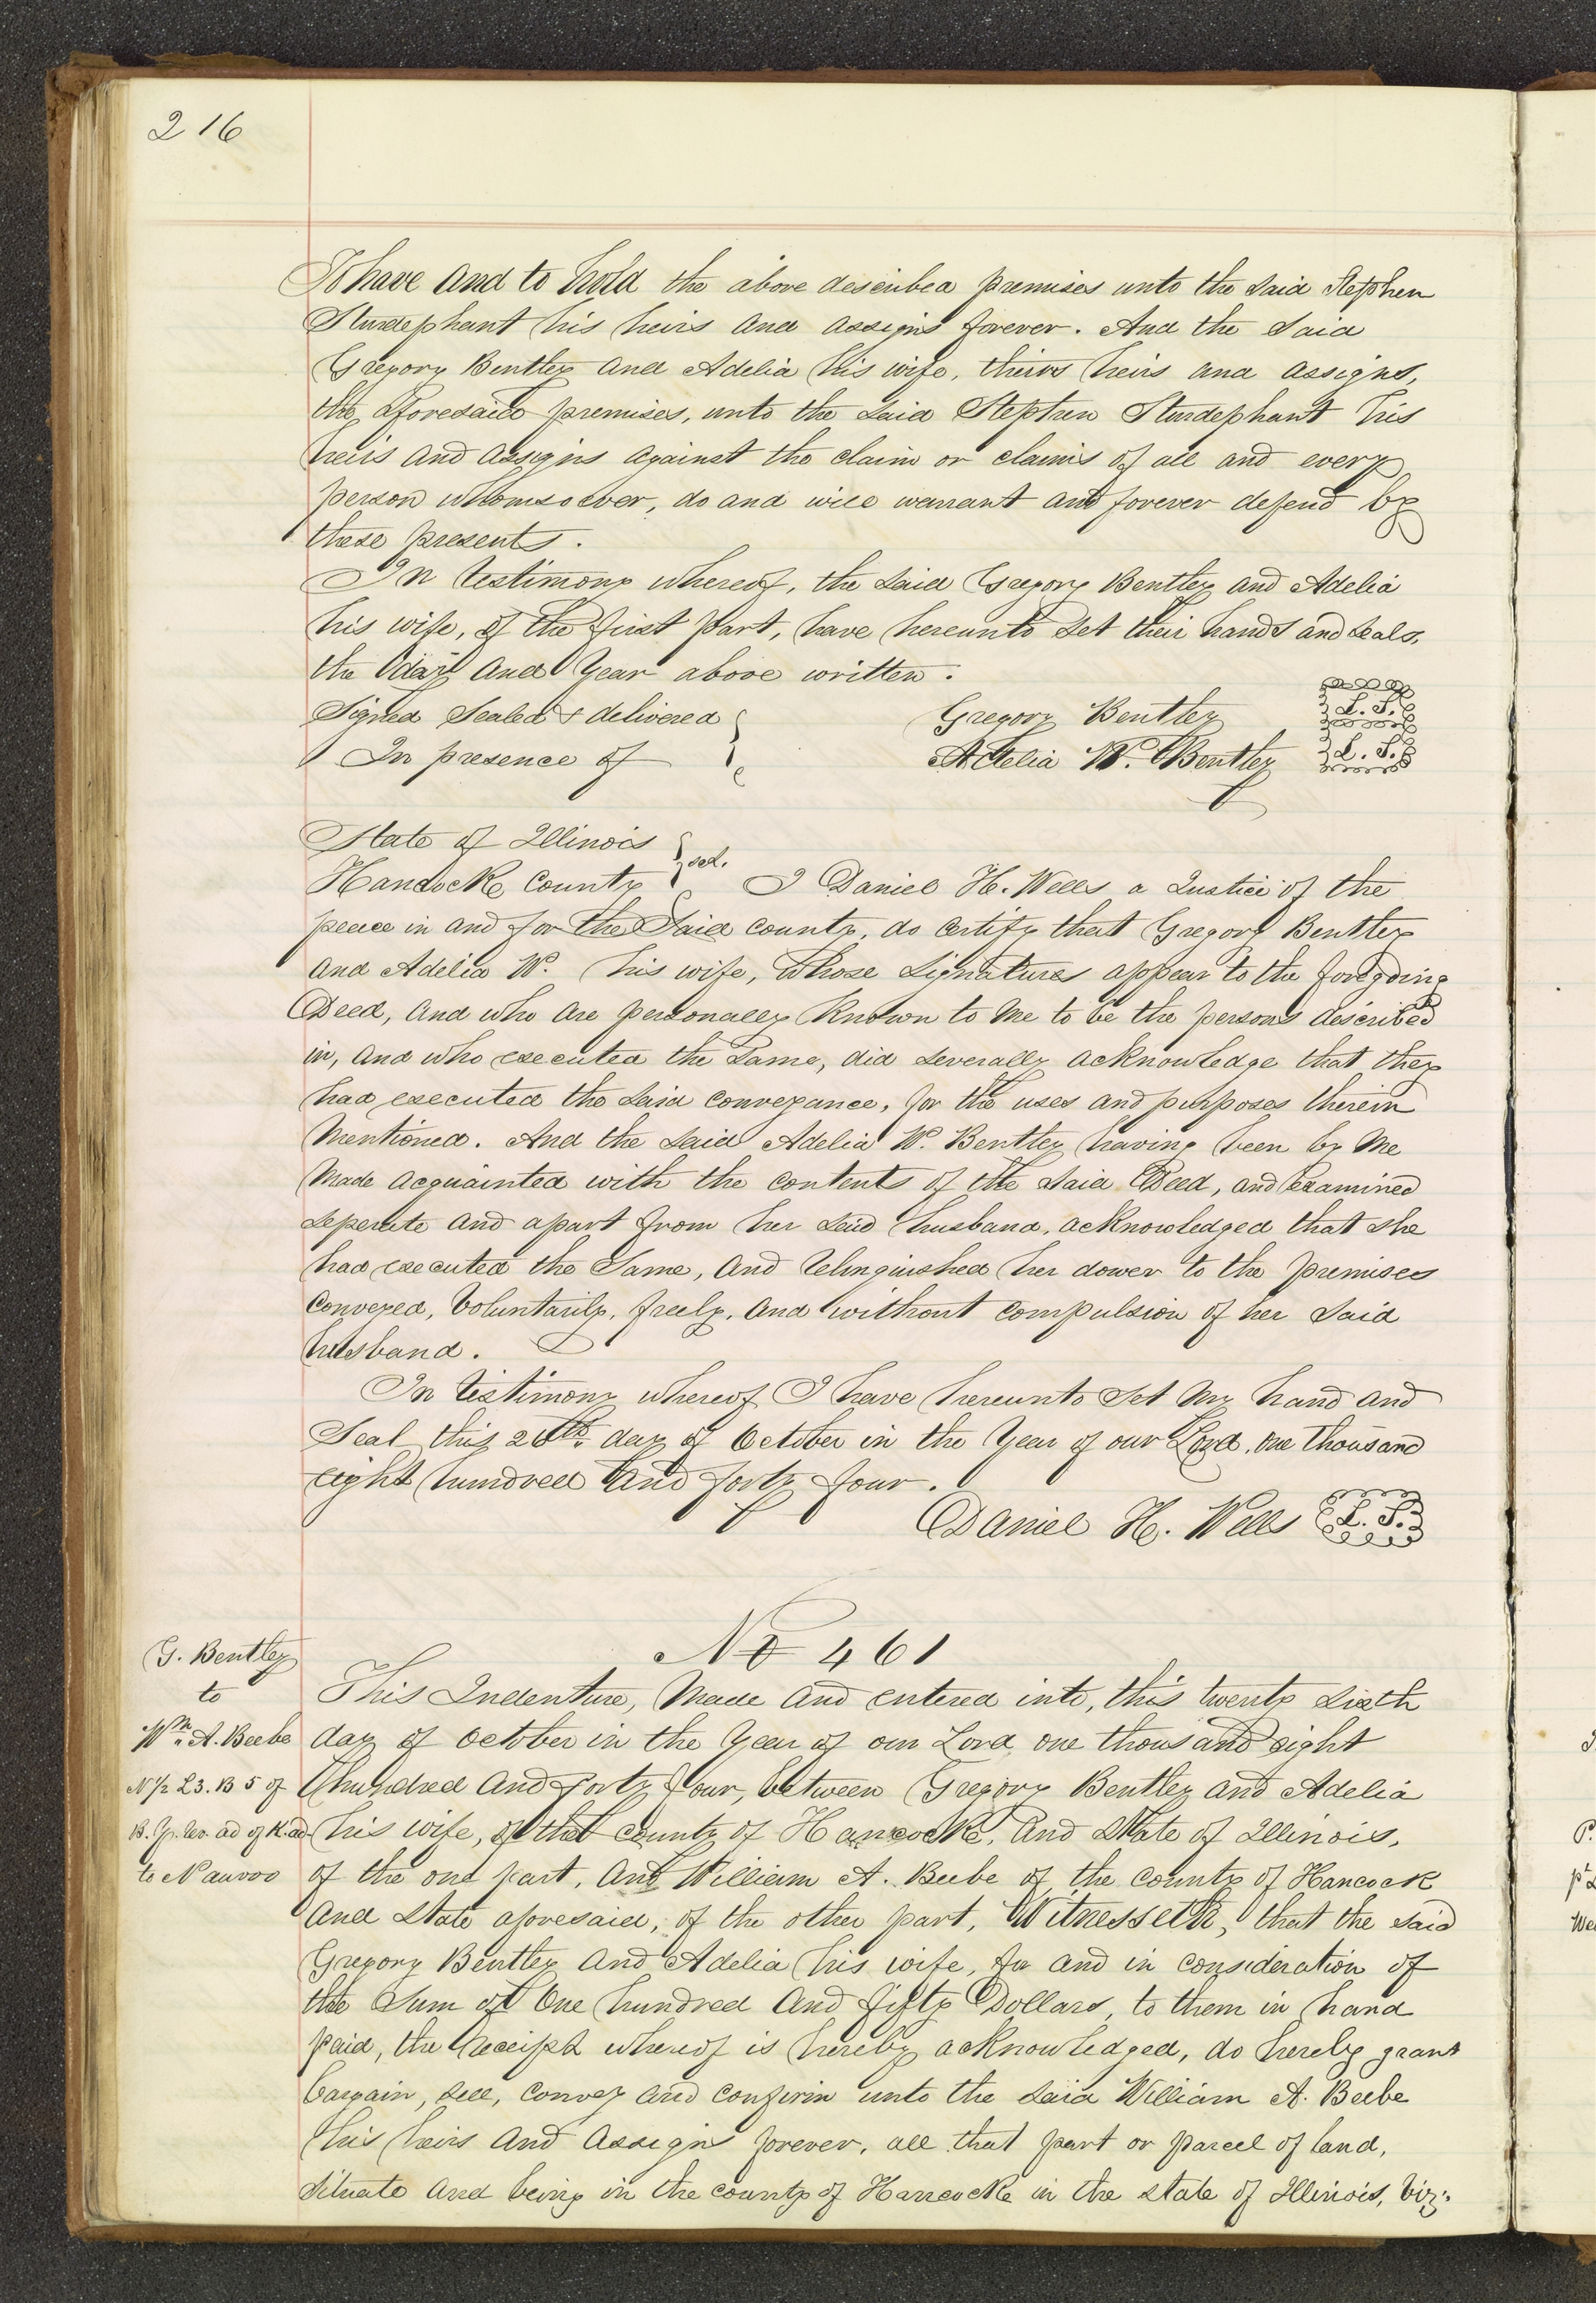 216
To have and to hold the above described premises unto the said Stephen
Sturdephant his heirs and assigns forever. And the said
Gregory Bentley and Adelia his wife, theirs heirs and assigns,
the aforesaid premises, unto the said Stephen Sturdephant his
heirs and assigns against the claim or claims of all and every
person whomsoever, do and will warrant and forever defend by
these presents.
In testimony whereof, the said Gregory Bentley and Adelia
his wife, of the first part, have hereunto set their hands and seals,
the day and Year above written.
Signed Sealed & delivered
In presence of
Gregory Bentley L. S.
Adelia W. Bentley L. S.
State of Illinois
Hancock County sct. I Daniel H. Wells a Justice of the
peace in and for the Said county, do certify that Gregory Bentley
and Adelia W. his wife, whose signatures appear to the foregoing
Deed, and who are personally known to me to be the persons described
in, and who executed the Same, did severally acknowledge that they
had executed the said conveyance, for the uses and purposes therein
mentioned. And the said Adelia W. Bentley having been by me
made acquainted with the contents of the said Deed, and examined
seperate and apart from her said husband, acknowledged that she
had executed the Same, and relinquished her dower to the premises
conveyed, Voluntarily, freely, and without compulsion of her said
husband.
In testimony whereof I have hereunto set my hand and
Seal this 26th day of October in the Year of our Lord, one thousand
eight hundred and forty four.
Daniel H. Wells L. S.
No 461
G. Bentley
to
Wm A. Beebe
N 1/2 L 3. B 5 of
to Nauvoo
This Indenture, Made and entered into, this twenty sixth
day of October in the Year of our Lord one thousand eight
hundred and forty four, between Gregory Bentley and Adelia
his wife, of the county of Hancock, and State of Illinois,
of the one part, and William A. Beebe of the county of Hancock
and State aforesaid, of the other part, Witnesseth, that the said
Gregory Bentley and Adelia his wife, for and in consideration of
the Sum of One hundred and fifty Dollars, to them in hand
paid, the receipt whereof is hereby acknowledged, do hereby grant
bargain, sell, convey and confirm unto the said William A. Beebe
his heirs and assigns forever, all that part or parcel of land,
situate and being in the county of Hancock in the state of Illinois, viz: